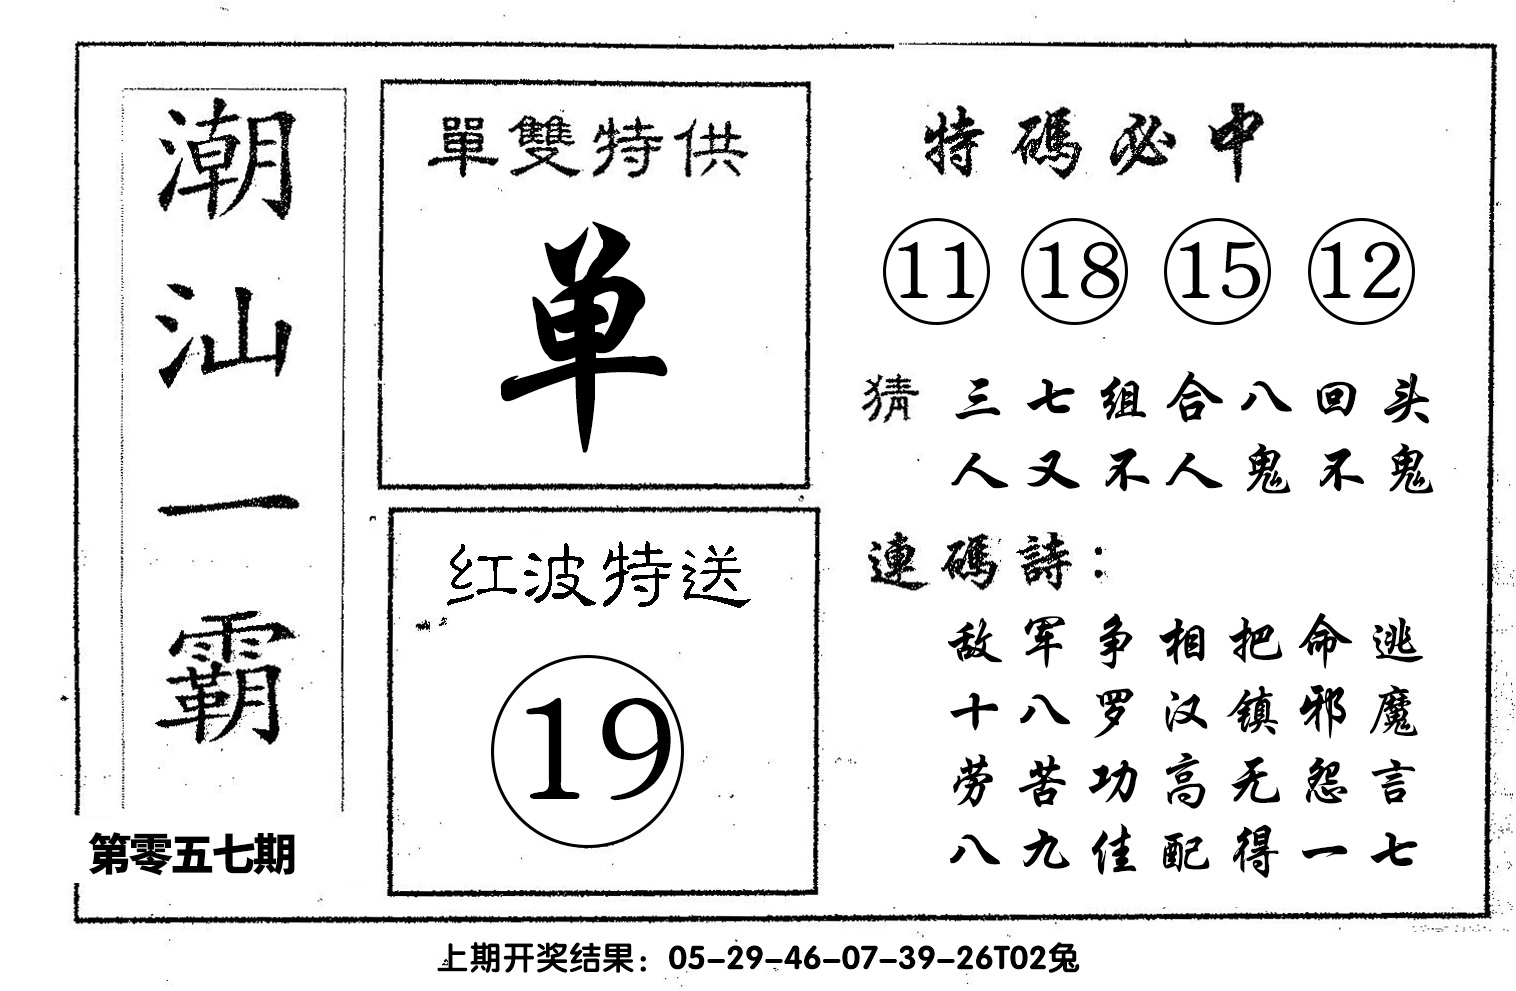 潮汕一霸
第零五七期
單雙特供
单
红波特送
19
特碼必中
11 18 15 12
猜 三七组合八回头
人又不人鬼不鬼
連碼詩：
敌军争相把命逃
十八罗汉镇邪魔
劳苦功高无怨言
八九佳配得一七
上期开奖结果：05-29-46-07-39-26T02兔